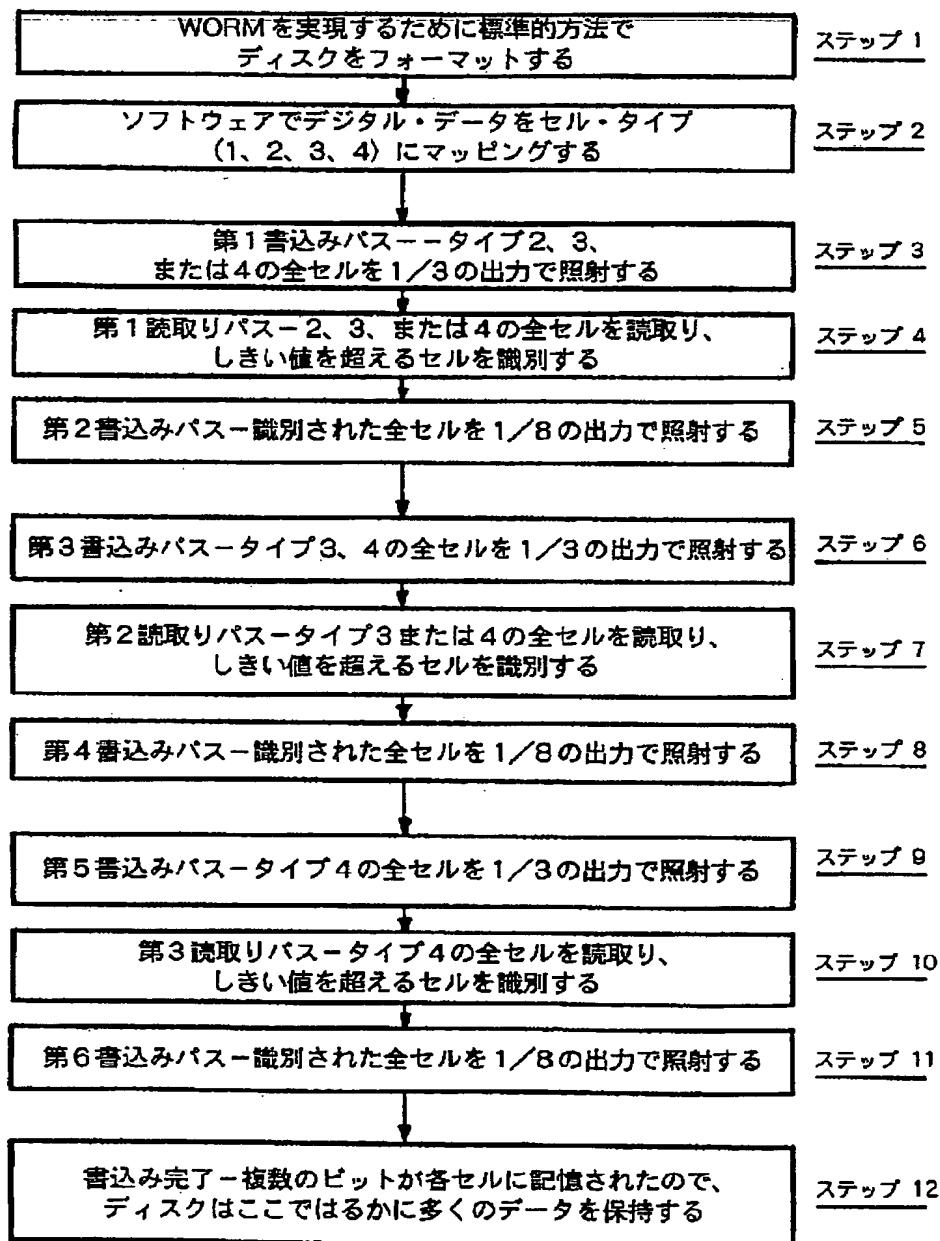 WORMを実現するために標準的方法で
ディスクをフォーマットする
ステップ 1
ソフトウェアでデジタル・データをセル・タイプ
(1、2、3、4) にマッピングする
ステップ 2
第1書込みパスーータイプ2、3、
または4の全セルを1/3の出力で照射する
ステップ 3
第1読取りパスー2、3、または4の全セルを読取り、
しきい値を超えるセルを識別する
ステップ 4
第2書込みパスー識別された全セルを1/8の出力で照射する
ステップ 5
第3書込みパスータイプ3、4の全セルを1/3の出力で照射する
ステップ 6
第2読取りパスータイプ3または4の全セルを読取り、
しきい値を超えるセルを識別する
ステップ 7
第4書込みパスー識別された全セルを1/8の出力で照射する
ステップ 8
第5書込みパスータイプ4の全セルを1/3の出力で照射する
ステップ 9
第3読取りパスータイプ4の全セルを読取り、
しきい値を超えるセルを識別する
ステップ 10
第6書込みパスー識別された全セルを1/8の出力で照射する
ステップ 11
書込み完了－複数のビットが各セルに記憶されたので、
ディスクはここではるかに多くのデータを保持する
ステップ 12